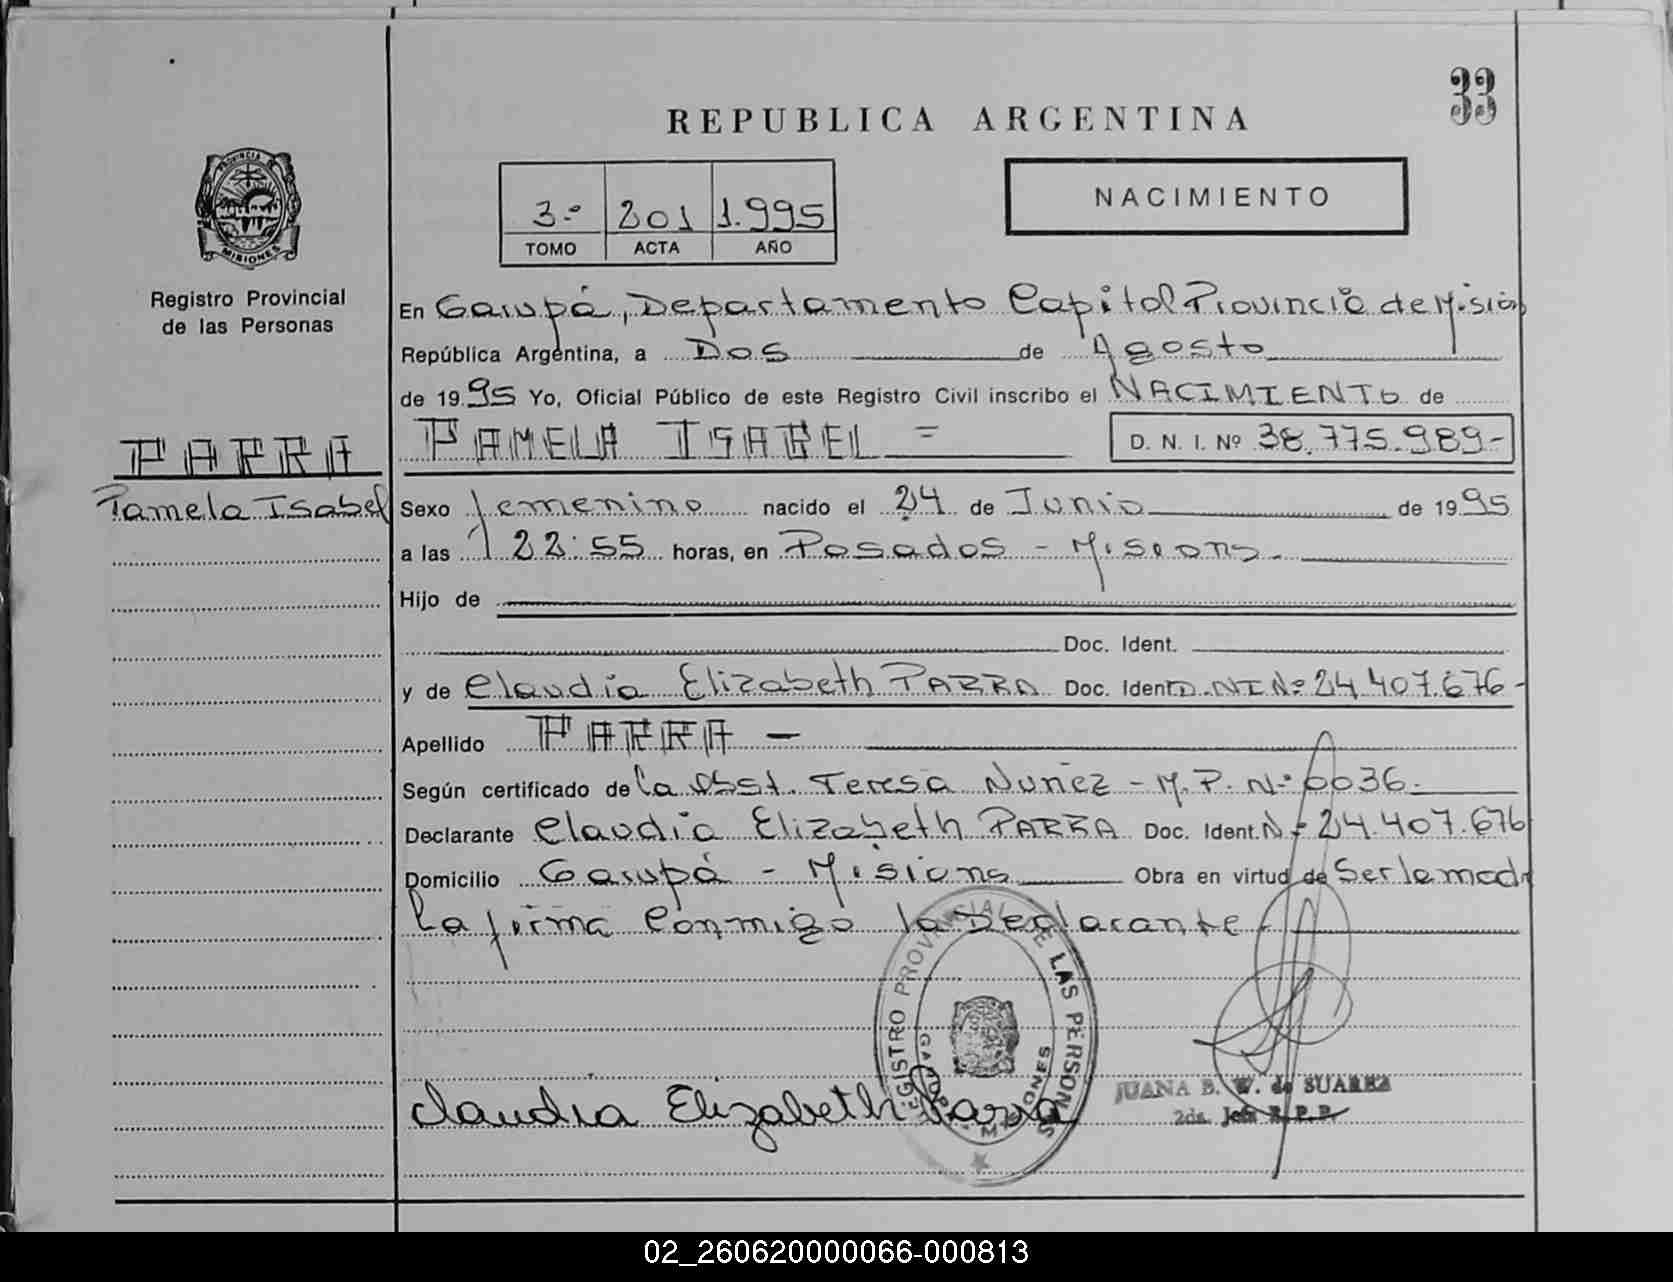 33
REPUBLICA ARGENTINA
PROVINCIA DE
MISIONES
Registro Provincial
de las Personas
3º 201 1.995
TOMO ACTA AÑO
NACIMIENTO
En Garupá, Departamento Capitol Provincia de Mision
República Argentina, a Dos de Agosto
de 1995 Yo, Oficial Público de este Registro Civil inscribo el NACIMIENTO de
PARRA
Pamela Isabel
PAMELA ISABEL = D. N. I. Nº 38.775.989-
Sexo femenino nacido el 24 de Junio de 1995
a las 22:55 horas, en Posadas - Misions
Hijo de
Doc. Ident.
y de Claudia Elizabeth PARRA Doc. Ident D.N.I Nº 24.407.676-
Apellido PARRA -
Según certificado de la Obst. Teresa Nuñez - M.P. Nº 0036.
Declarante Claudia Elizabeth PARRA Doc. Ident. Nº 24.407.676
Domicilio Garupá - Misions Obra en virtud de Ser la mad
la firma conmigo la Declarante
REGISTRO PROVINCIAL DE LAS PERSONAS
GARUPA MISIONES
Claudia Elizabeth Parra
JUANA B. W. de SUAREZ
2da. Jefe R.P.P.
02_260620000066-000813